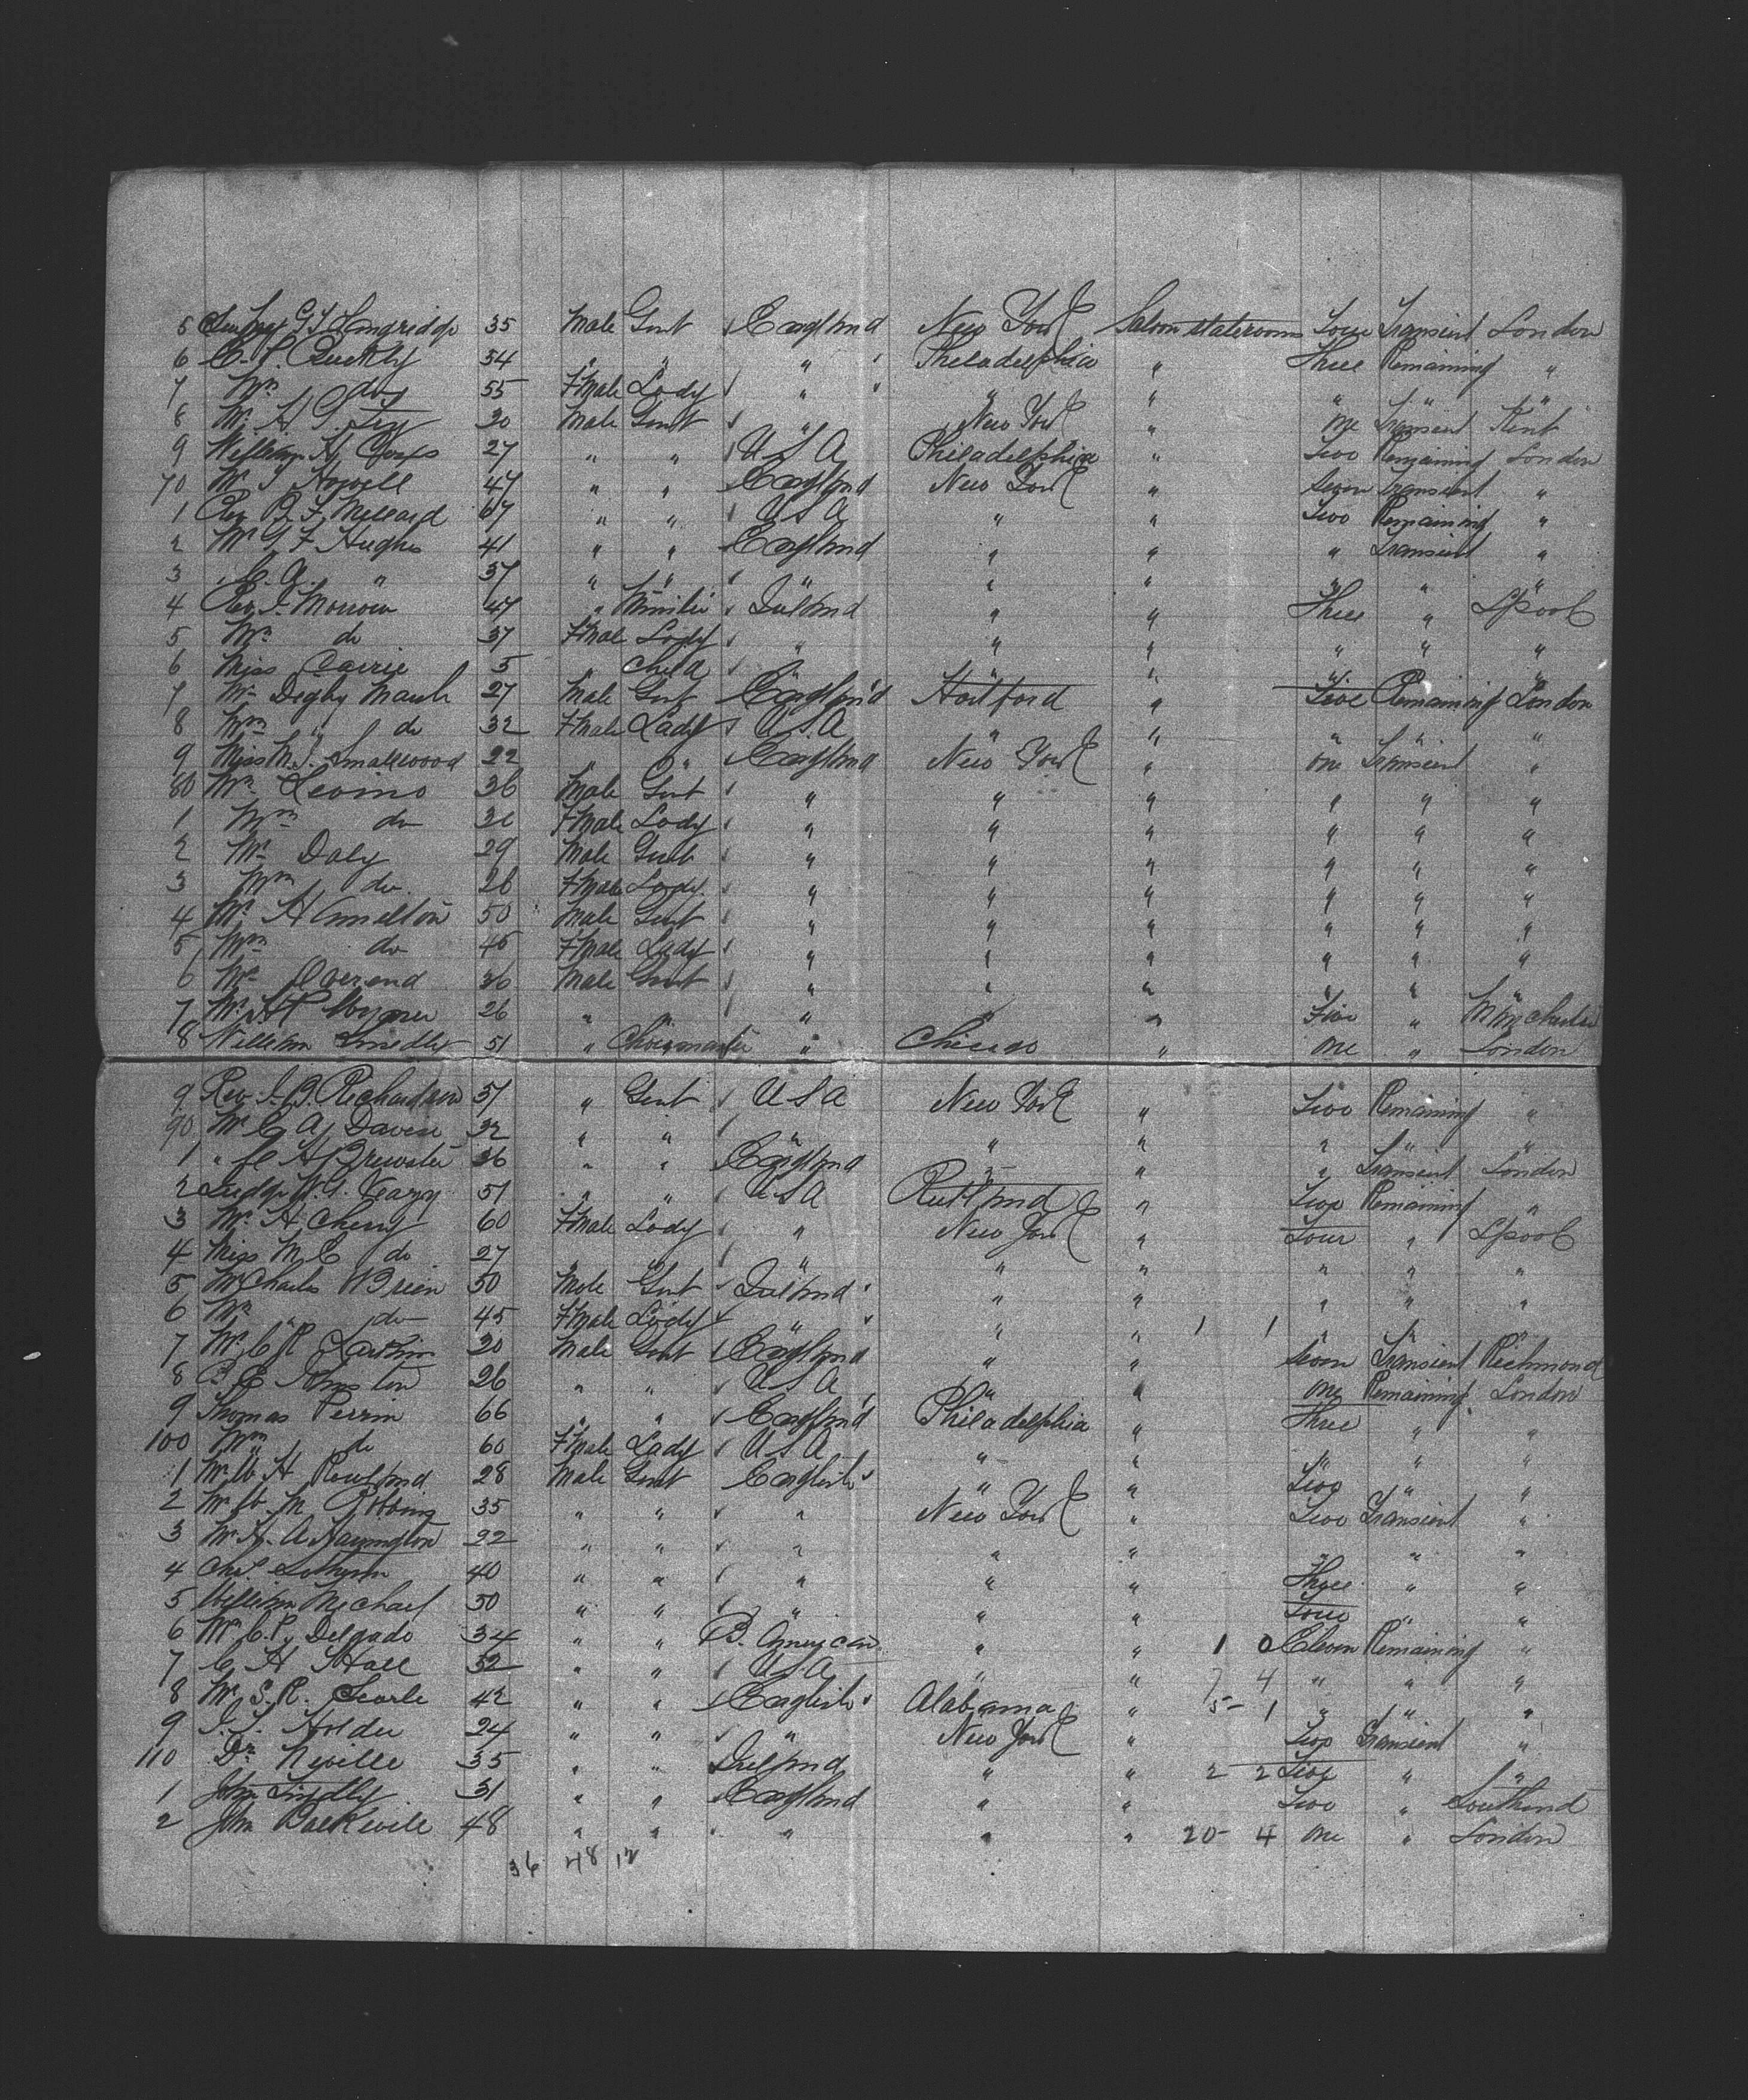 5 35 Male Gent England New York Saloon staterooms Four Transient London
6 54 " " " Philadelphia " Three Remaining "
7 Mrs do 55 Fmale Lady " " " " " "
8 Mr 20 Male Gent " New York " one Transient Kent
9 William H. 27 " " U S A Philadelphia " Two Remaining London
70 Mr Howell 47 " " England New York " Seven Transient "
1 Rev B. F. Millard 67 " " U S A " " Two Remaining "
2 Mr G F Hughes 41 " " England " " " Transient "
3 " 37 " " " " " " "
4 Rev J. Morrow 47 " Minister Ireland " " Three " L'pool
5 Mrs do 37 Fmale Lady " " " " " "
6 Miss Carrie 5 " Child " " " " " "
7 Mr Digby Marsh 27 Male Gent England Hartford " Five Remaining London
8 Mrs " do 32 Fmale Lady U.S.A " " " " "
9 Miss M. J. Smallwood 22 " " England New York " one Transient "
80 Mr Levino 36 Male Gent " " " " " "
1 Mrs do Fmale Lady " " " " " "
2 Mr Daly 29 Male Gent " " " " " "
3 Mrs do. 26 Fmale Lady " " " " " "
4 Mr Hamelton 50 Male Gent " " " " " "
5 Mrs do 45 Fmale Lady " " " " " "
6 Mr Overend 36 Male Gent " " " " " "
7 Mr 26 " " " " " " Manchester
8 William 51 " Choirmaster " Chicago " one " London
9 Rev. J. B. Richardson 57 " Gent U S A New York " Two Remaining "
90 Mr C A 32 " " " " " " " "
1 " H Brewster 36 " " England " " " Transient London
2 Judge W. G. Veazy 51 " " U S A Rutland " Remaining "
3 Mrs H Cherry 60 Fmale Lady " New York " Four " L'pool
4 Miss M E do 27 " " " " " " " "
5 Mr Charles O'Brien 50 Male Gent Ireland " " " " "
6 Mrs " do 45 Fmale Lady " " " 1 1 " " "
7 Mr C R Larkin 20 Male Gent England " " Seven Transient Richmond
8 Johnston 26 " " U S A " " one Remaining London
9 Thomas Perrin 66 " " England Philadelphia " Three " "
100 Mrs " do 60 Fmale Lady U S A " " " " "
1 Mr W H Rowland 28 Male Gent English " " Two " "
2 Mr W. M. Robbins 35 " " " New York " Two Transient "
3 Mr H. A Harrington 22 " " " " " " " "
4 Chas. 40 " " " " " Three " "
5 William Michael 50 " " " " " Four " "
6 Mr C. P. Delgado 34 " " B. American " " 1 0 Eleven Remaining "
7 C H Hall 52 " " U.S.A " " 7 4 " " "
8 Mr S. R. Searle 42 " " English Alabama " 5 1 " " "
9 J. S. Holder 24 " " " New York " Two Transient "
110 Dr Neville 35 " " Ireland " " 2 2 " "
1 John 31 " " England " " Two " Southend
2 John 48 " " " " " 20 4 one " London
36 48 12